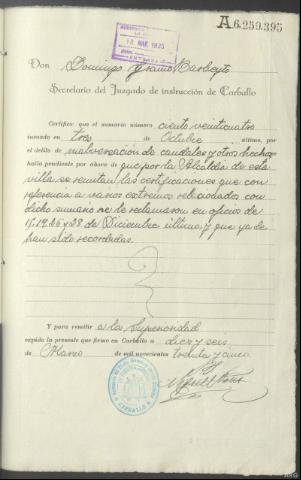 A.6.259.395
18 MAR. 1935
Don Domingo
Secretario del Juzgado de instrucción de Carballo
Certifico: que el sumario número ciento veinticuatro
incoado en tres de Octubre último, por
el delito de malversación de caudales y otros hechos
halla pendiente por ahora de que por la Alcaldía de esta
villa se remitan las certificaciones que con
referencia a varios extremos relacionados con
dicho sumario se le reclamaron en oficios de
15, 19, 26 y 28 de Diciembre último, y que ya le
han sido recordadas.
Y para remitir a la Superioridad
expido la presente que firmo en Carballo a diez y seis
de Marzo de mil novecientos treinta y cinco.
CARBALLO